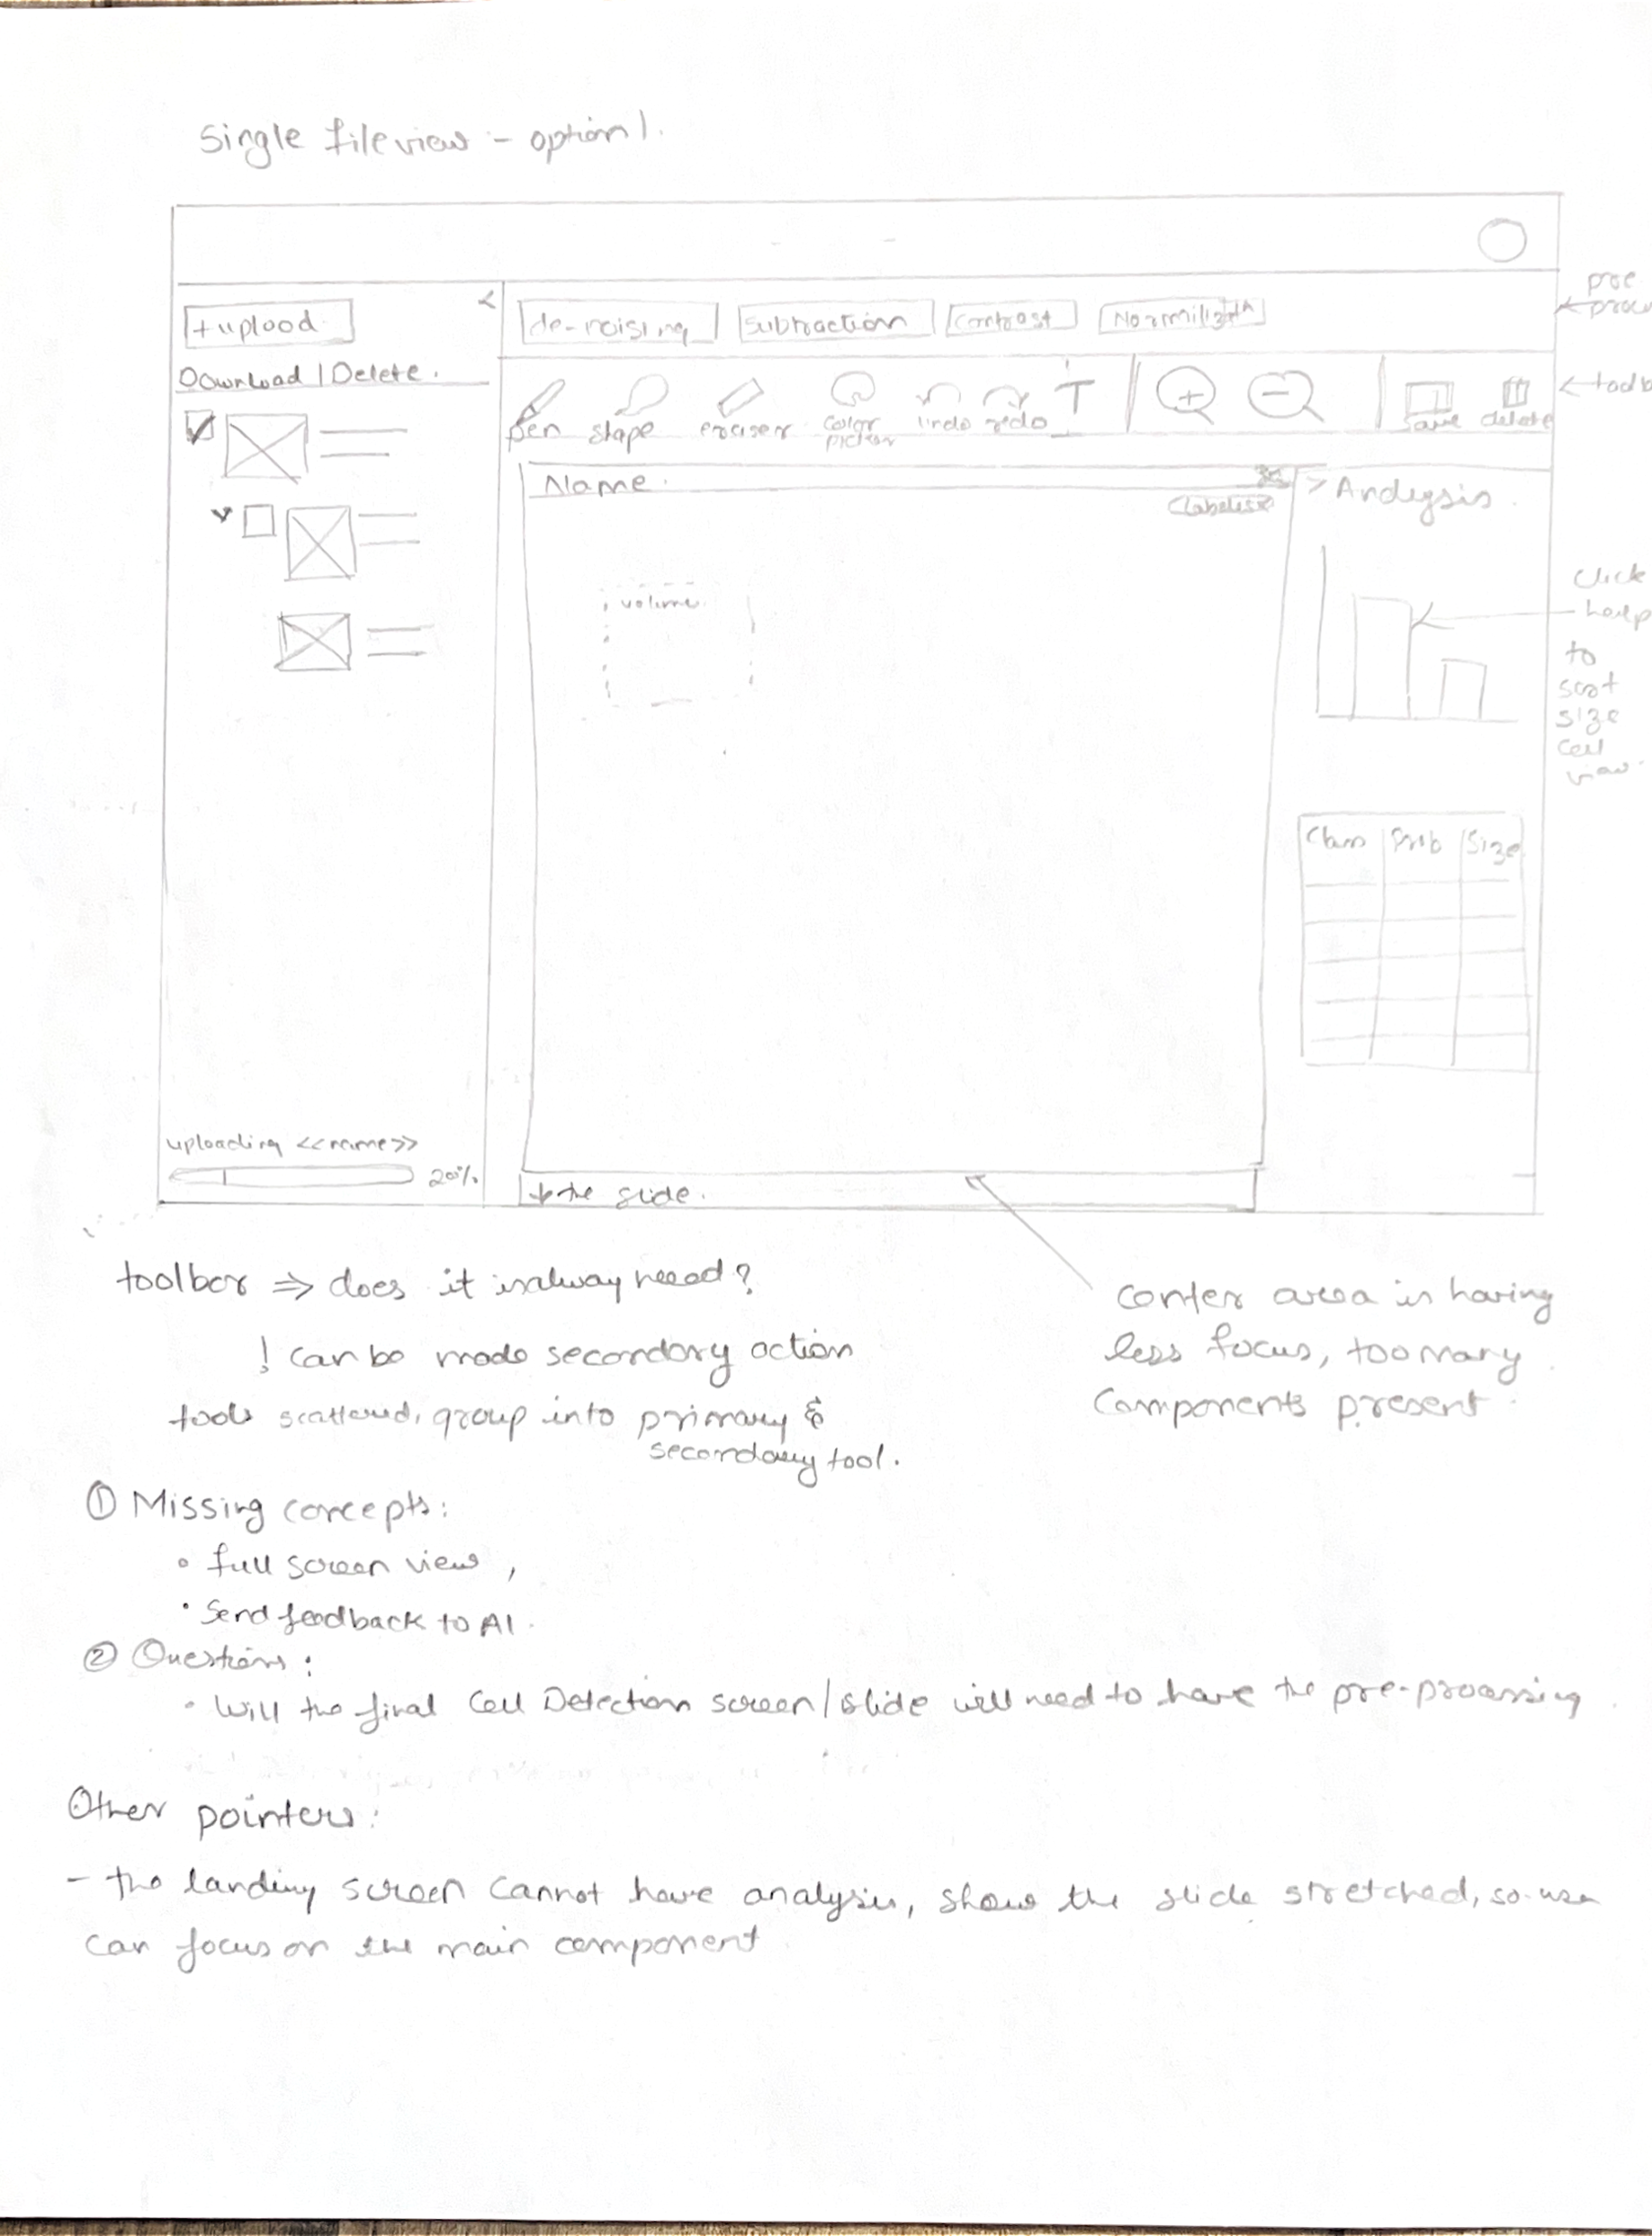 Single file view - option 1.
+ upload
<
de-noising
Subtraction
Contrast
pre
Download | Delete.
pen
shape
eraser
color
picker
undo
redo
T
+
-
save
delete
Name.
Labels
> Analysis.
volume
Click
help
to
size
Cell
view.
Class
Prob
Size
uploading <<name>>
20%
the slide.
toolbar ⇒ does it need?
! can be made secondary action
tools scattered, group into primary &
secondary tool.
center area is having
less focus, too many
Components present.
① Missing concepts:
• full screen view,
• Send feedback to AI.
② Questions:
• Will the final Cell Detection screen/slide will need to have the pre-processing
Other pointers:
- the landing screen cannot have analysis, show the slide stretched, so
can focus on the main component